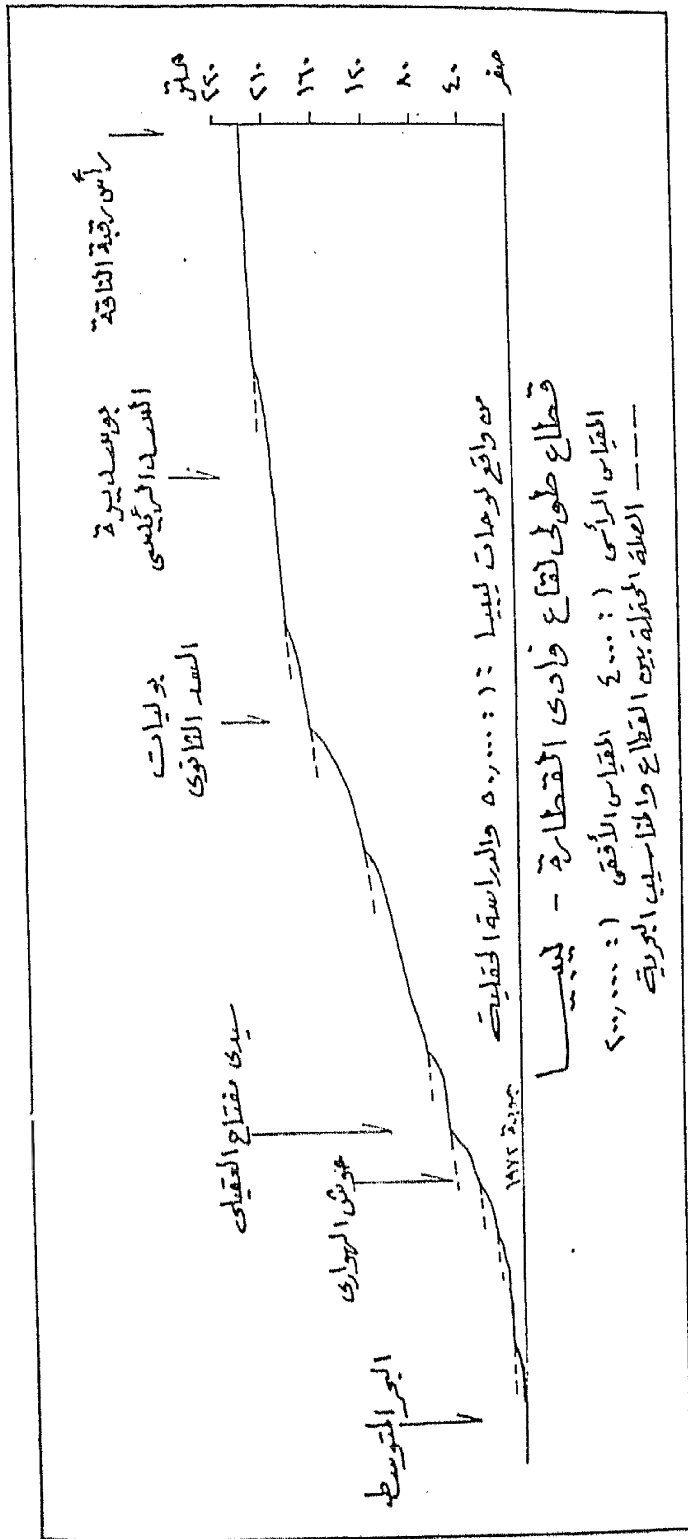 متر
٢٤٠
٢١٠
١٦٠
١٢٠
٨٠
٤٠
صفر
رأس رقبة الناقة
بوسديرة
السد الرئيسى
بوليات
السد الثانوى
سيدى مفتاح العقيلى
حوش الهوارى
البحر المتوسط
جودة ١٩٧٢
من واقع لوحات ليبيا ١ : ٥٠,٠٠٠ والدراسة الحقلية
قطاع طولى لقاع وادى القطارة - ليبيا
المقياس الرأسى ١ : ٤٠٠٠ المقياس الأفقى ١ : ٢٠٠,٠٠٠
---- الصلة المحتملة بين القطاع والمناسيب البحرية